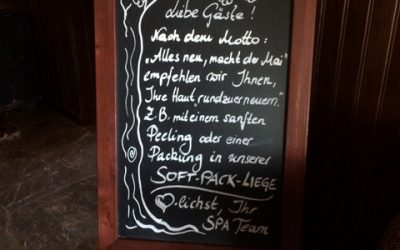 Liebe Gäste!
Nach dem Motto:
„Alles neu, macht der Mai"
empfehlen wir Ihnen,
Ihre Haut „rundzuerneuern."
Z.B. mit einem sanften
Peeling oder einer
Packung in unserer
SOFT-PACK-LIEGE
♡-lichst, Ihr
SPA Team